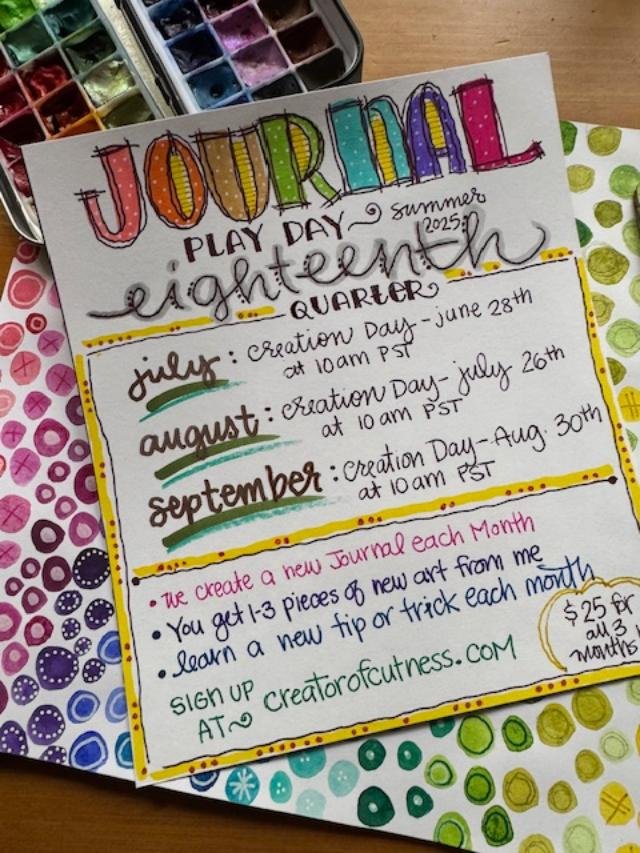 JOURNAL
PLAY DAY summer
2025
eighteenth
QUARTER
july: creation Day - june 28th
at 10am PST
august: creation Day - july 26th
at 10am PST
september: creation Day - Aug. 30th
at 10am PST
• We create a new Journal each Month
• You get 1-3 pieces of new art from me
• learn a new tip or trick each month
$25 for
all 3
months
SIGN UP
AT creatorofcutness.com